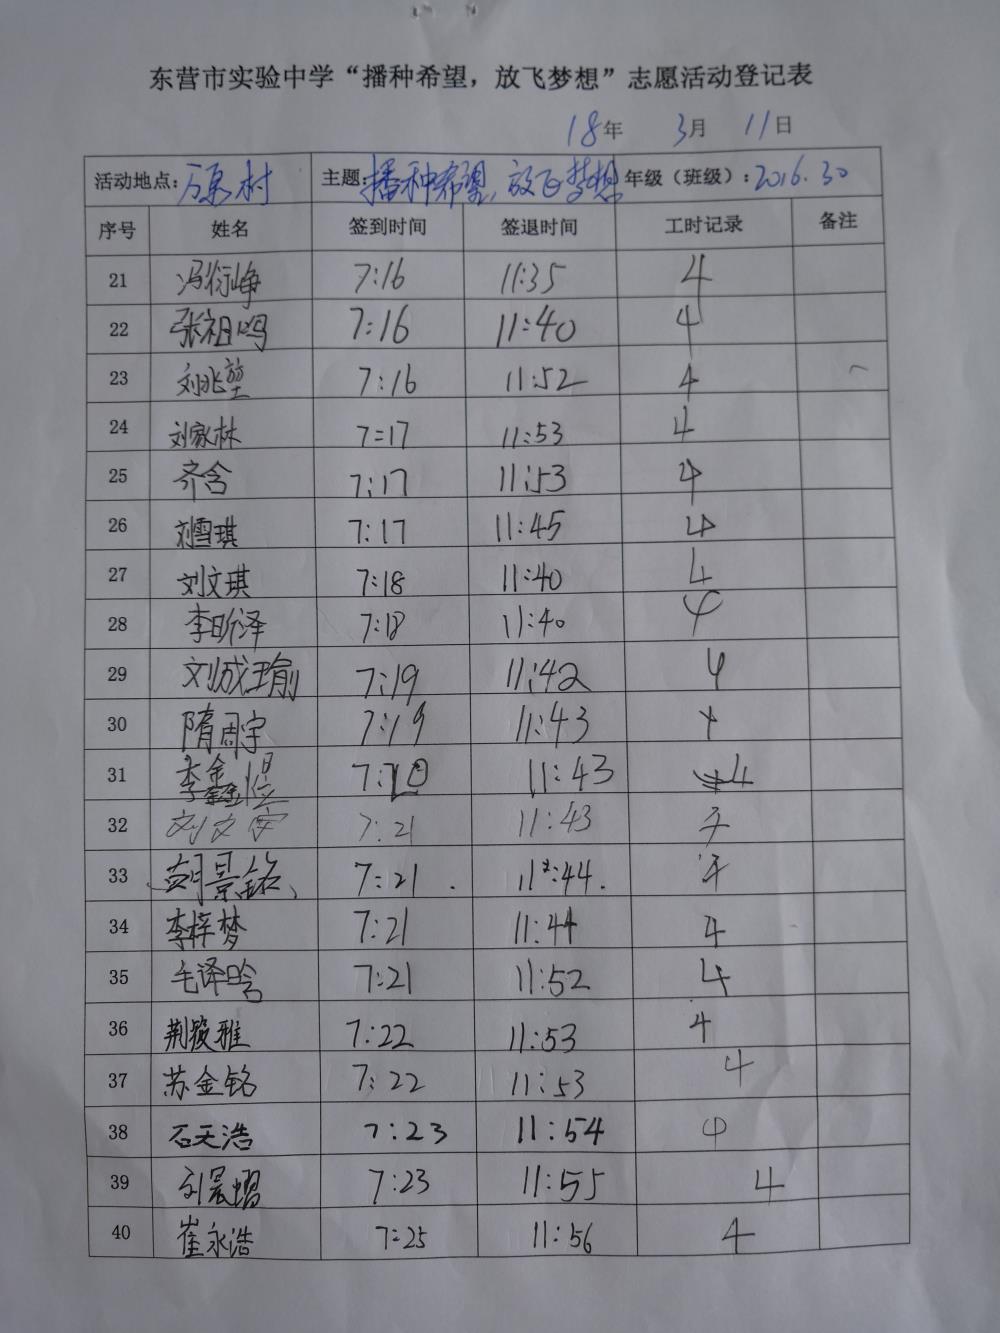 东营市实验中学“播种希望，放飞梦想”志愿活动登记表
18年 3月 11日
活动地点：万泉村 主题：播种希望，放飞梦想 年级（班级）：2016.30
序号 姓名 签到时间 签退时间 工时记录 备注
21 冯衍峥 7:16 11:35 4
22 张祖鸣 7:16 11:40 4
23 刘兆堃 7:16 11:52 4
24 刘家林 7:17 11:53 4
25 齐含 7:17 11:53 4
26 刘雪琪 7:17 11:45 4
27 刘文琪 7:18 11:40 4
28 李昕泽 7:18 11:40 4
29 刘成瑜 7:19 11:42 4
30 隋周宇 7:19 11:43 4
31 李鑫 11:43 4
32 刘文 7:21 11:43 4
33 胡景铭 7:21 11:44 4
34 李梓梦 7:21 11:44 4
35 毛泽晗 7:21 11:52 4
36 荆筱雅 7:22 11:53 4
37 苏金铭 7:22 11:53 4
38 石天浩 7:23 11:54 4
39 刘晨熠 7:23 11:55 4
40 崔永浩 7:25 11:56 4